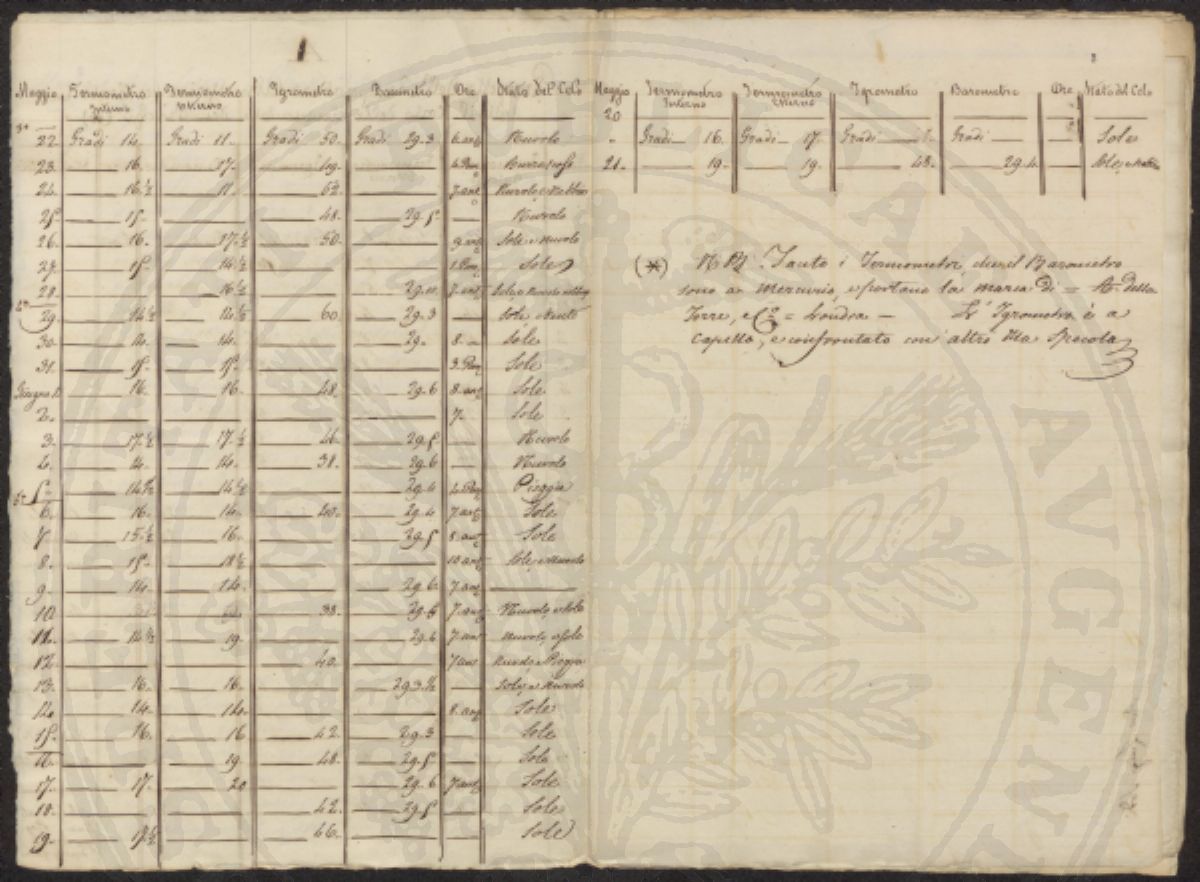 1
Maggio Termometro Interno Termometro esterno Igrometro Barometro Ore Stato del Celo
22. Gradi 14. Gradi 11. Gradi 50. Gradi 29.3 6.ant Nuvolo
23. 16. 17. 49. 4.Pom
24. 16.½ 11 62. 7.ant Nuvolo, e Nebbia
25. 15. 48. 29.5. Nuvolo
26. 16. 17.½ 50. 9.ant Sole e Nuvolo
27. 15. 14.½ 1.Pom Sole
28. 16½ 7.ant
29. 14½ 14½ 60. 29.3 Sole e Vento
30. 14. 14. 29. 8. Sole
31. 15. 15. 3.Pom Sole
Giugno 1. 16. 16. 48. 29.6 8.ant Sole
2. 7. Sole
3. 17.½ 17.½ 46. 29.5 Nuvolo
4. 14. 14. 38. 29.6 Nuvolo
5. 14½ 14½ 29.4 4.Pom Pioggia
6. 16. 14. 40. 29.4 7.ant Sole
7. 15.½ 16. 29.5 8.ant Sole
8. 15. 18½ 10 ant Sole, e Nuvolo
9. 14. 14. 29.6. 7.ant
10. 38. 29.6 7.ant Nuvolo, e Sole
11. 14½ 19. 29.6 7.ant Nuvolo, e Sole
12. 40. 7 ant Nuvolo, e Piogga
13. 16. 16. 29.3.½ Sole, e Nuvolo
14. 14. 14. 8.ant Sole
15. 16. 16 42. 29.3 Sole
19. 48. 29.5 Sole
17. 17. 20 29.6 7ant Sole
18. 42. 29.5 Sole
19. 19½ 46. Sole
Maggio Termometro Interno Termometro esterno Igrometro Barometro Ore Stato del Celo
20
Gradi 16. Gradi 17. Gradi Gradi Sole
21. 19. 19. 48. 29.4.
(*) NB. Tanto i Termometri, che il Barometro
sono a Mercurio, e portano la marca di = A. della
Torre, e C.o = Londra — L'Igrometro è a
capello, e confrontato con altro della Specola